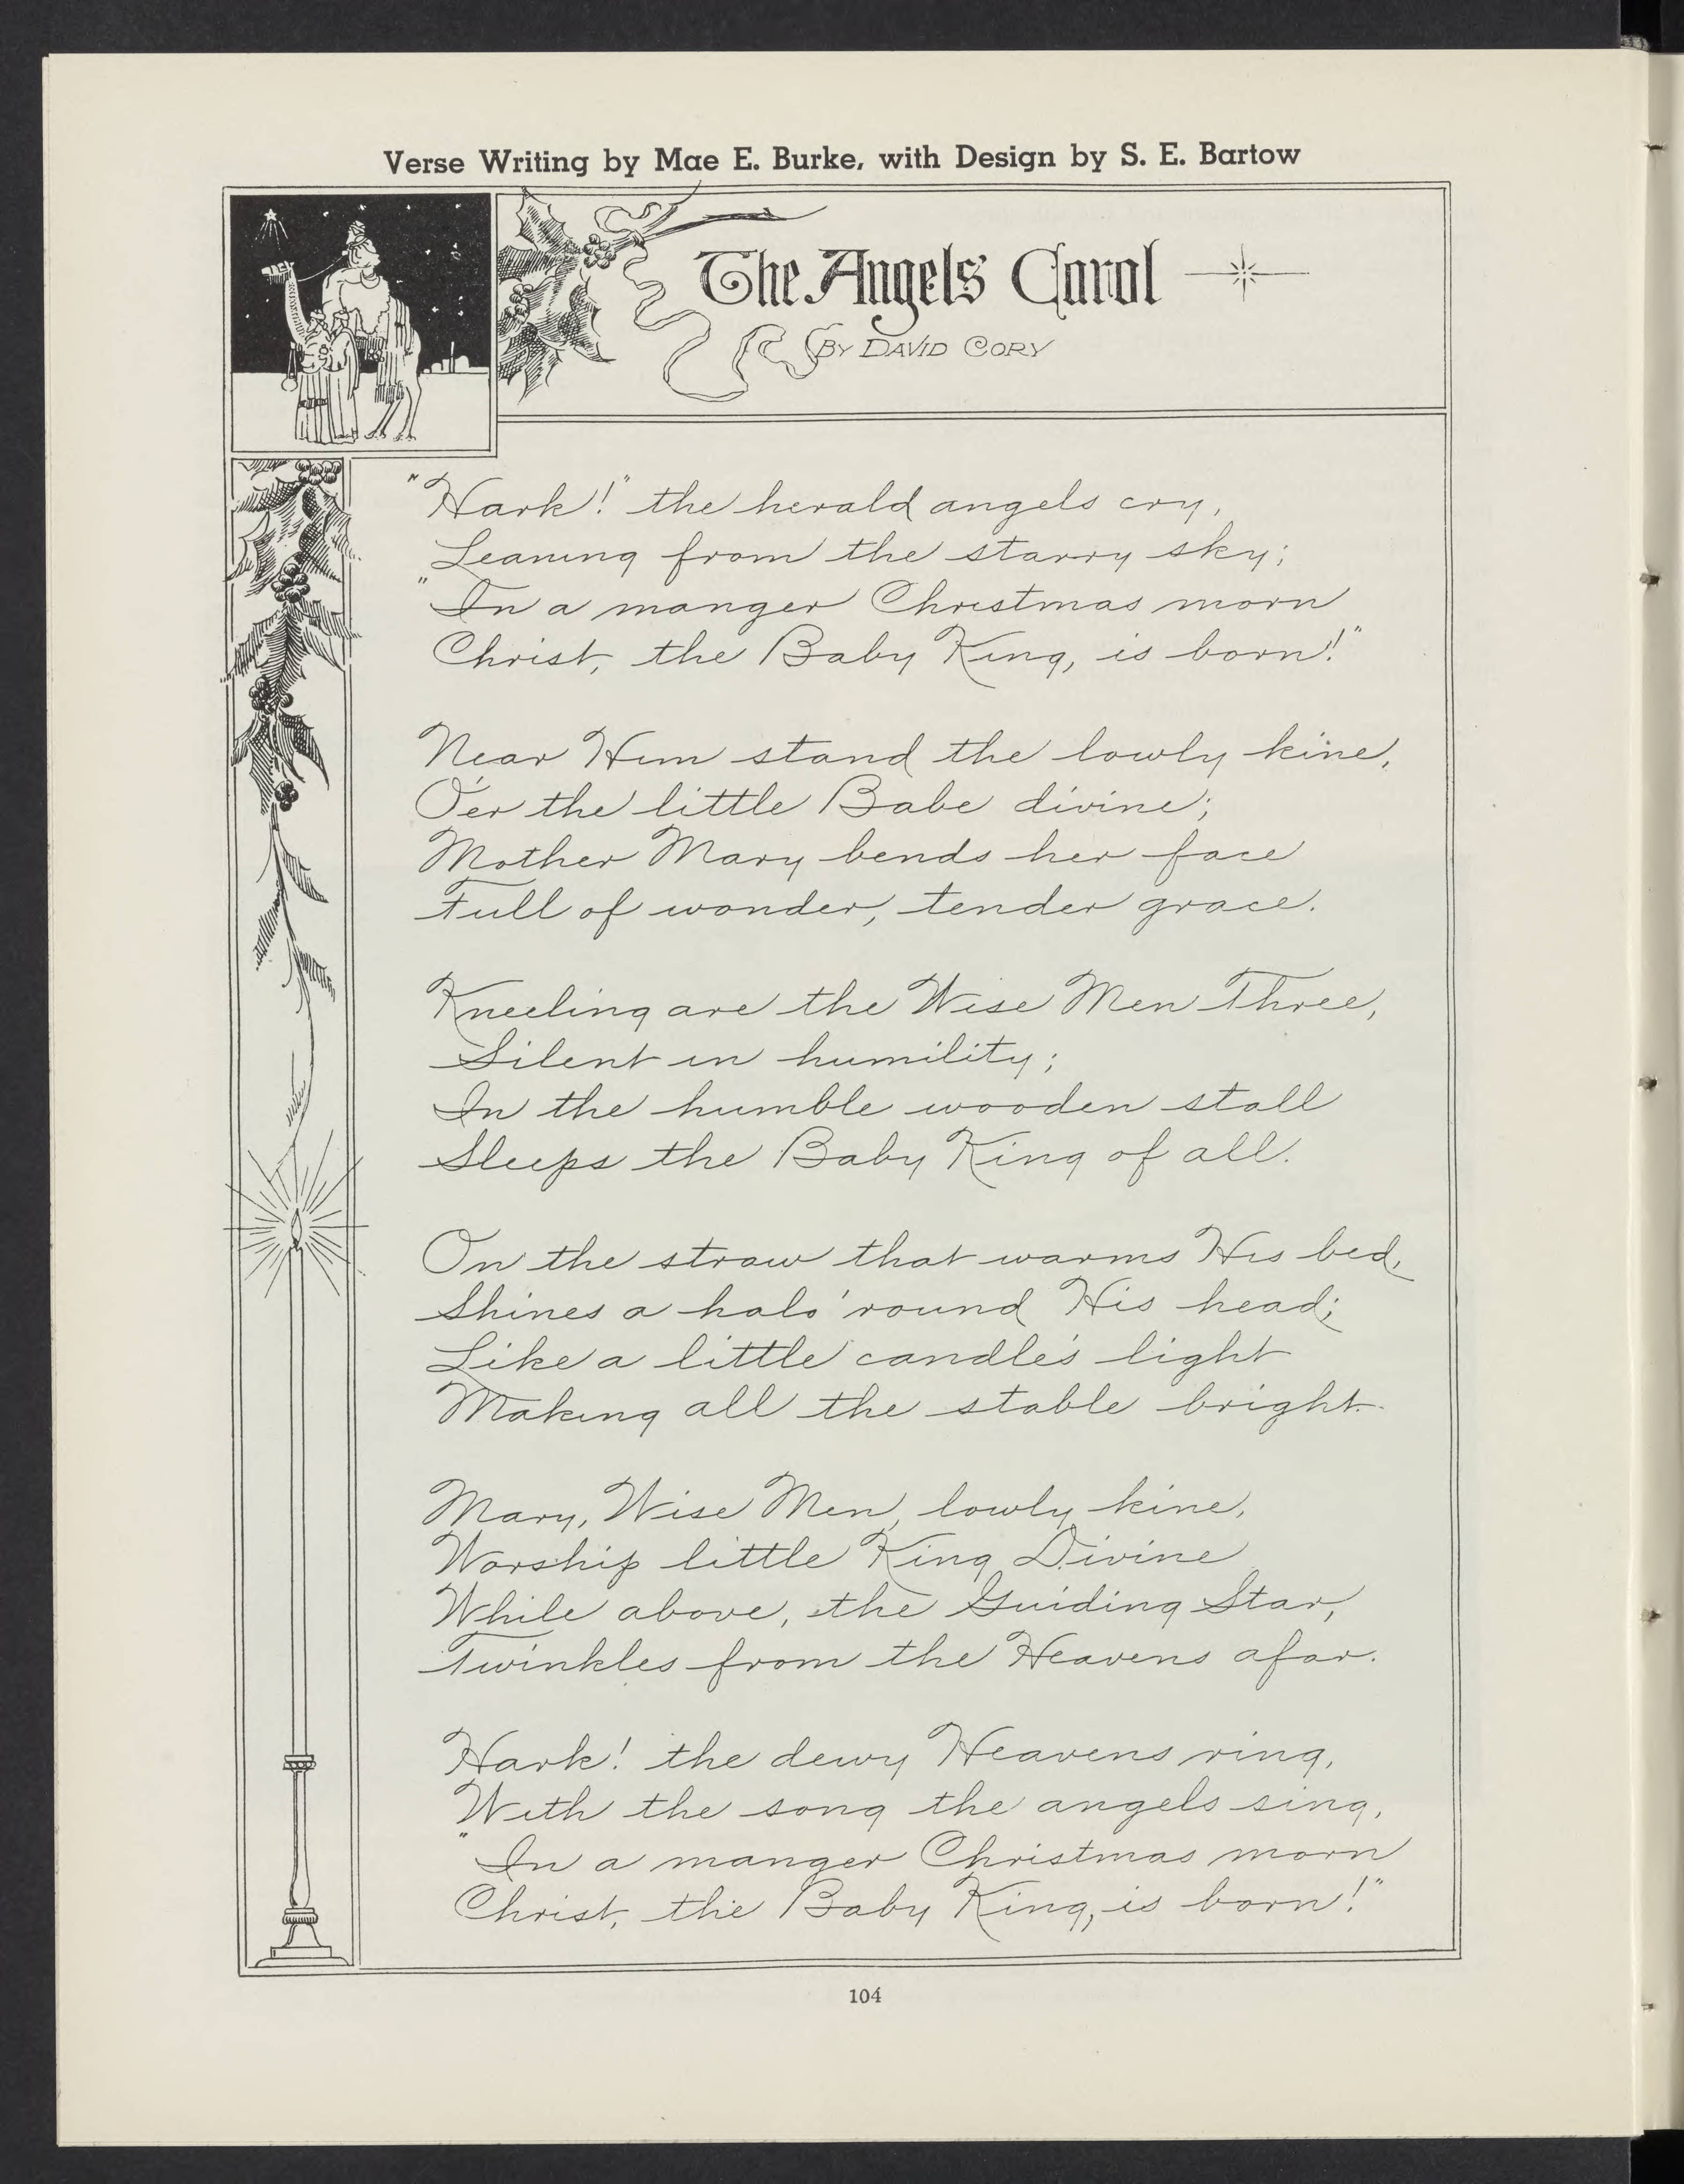 Verse Writing by Mae E. Burke, with Design by S. E. Bartow
The Angels' Carol
BY DAVID CORY
"Hark!" the herald angels cry,
Leaning from the starry sky;
"In a manger Christmas morn
Christ, the Baby King, is born!"
Near Him stand the lowly kine,
O'er the little Babe divine;
Mother Mary bends her face
Full of wonder, tender grace.
Kneeling are the Wise Men Three,
Silent in humility;
In the humble wooden stall
Sleeps the Baby King of all.
On the straw that warms His bed,
Shines a halo 'round His head;
Like a little candle's light
Making all the stable bright.
Mary, Wise Men, lowly kine,
Worship little King Divine
While above, the Guiding Star,
Twinkles from the Heavens afar.
Hark! the dewy Heavens ring,
With the song the angels sing,
"In a manger Christmas morn
Christ, the Baby King, is born!"
104